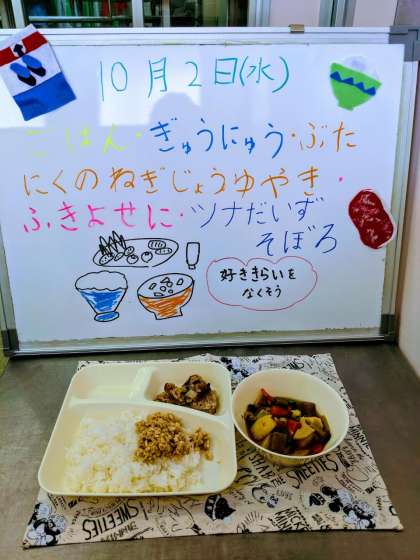 10月2日(水)
ごはん・ぎゅうにゅう・ぶた
にくのねぎじょうゆやき・
ふきよせに・ツナだいず
そぼろ
好ききらいを
なくそう